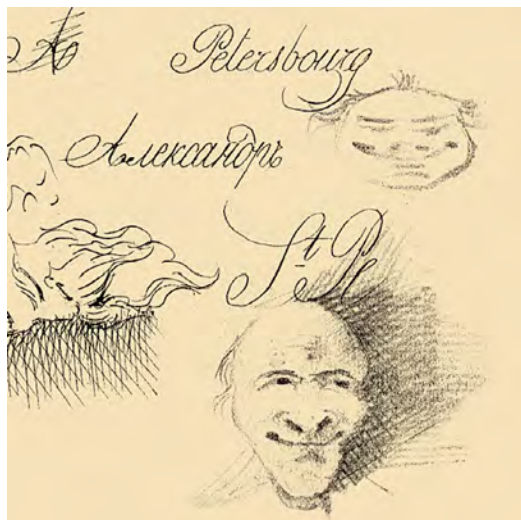 Petersbourg
Александръ
St. Pe